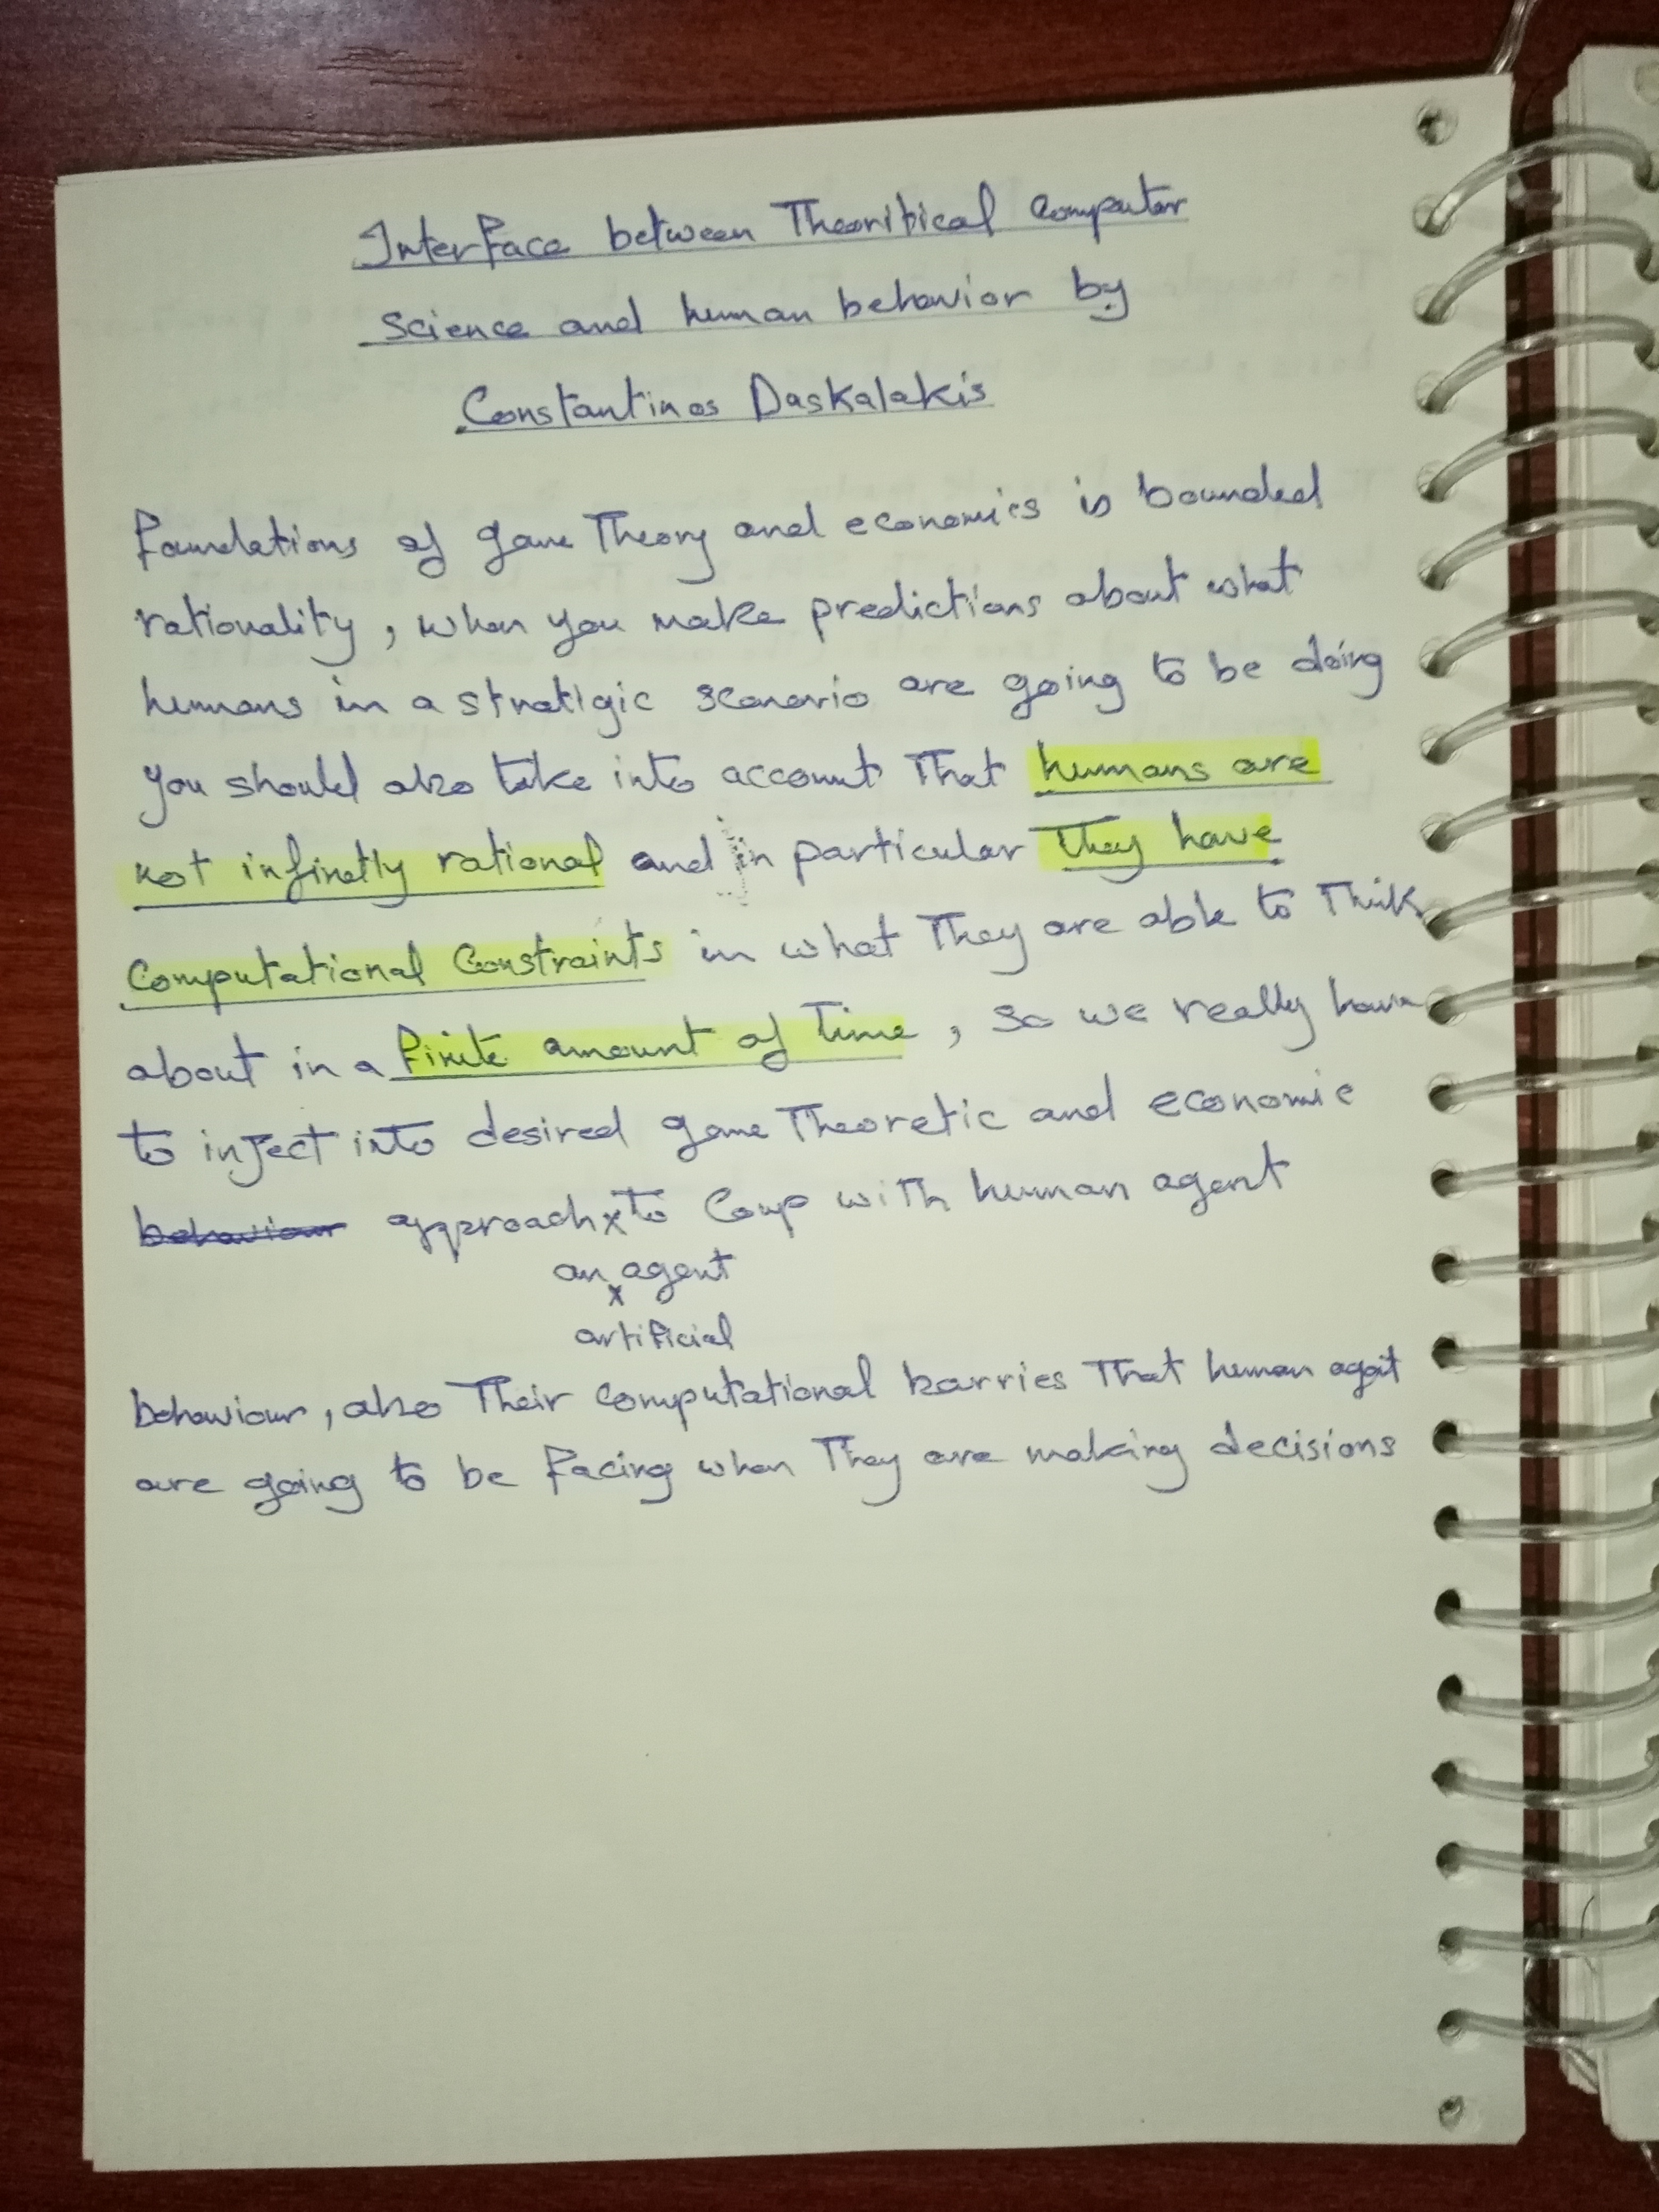 Interface between Theoritical Computer
Science and human behavior by
Constantinos Daskalakis
foundations of game Theory and economics is bounded
rationality, when you make predictions about what
humans in a stratigic scenario are going to be doing
you should also take into account That humans are
not infinetly rational and in particular They have
Computational Constraints in what They are able to Think
about in a finite amount of Time, so we really have
to inject into desired game Theoretic and economic
behaviour approach x to Coup with human agent
an x agent
artificial
behaviour, also Their computational barries That human agent
are going to be facing when They are making decisions